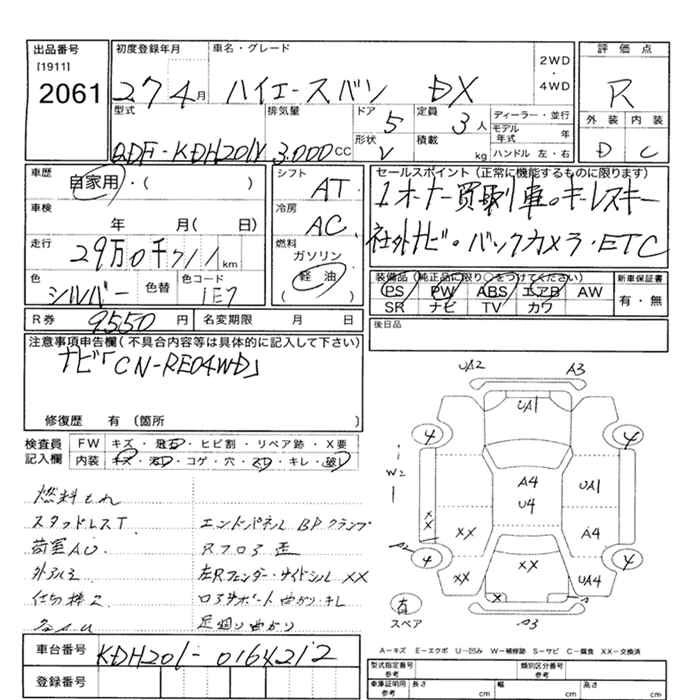 出品番号 初度登録年月 車名・グレード 評価点
[1911]
2061 27 4月 ハイエースバン DX 2WD・4WD R
型式 排気量 ドア 5 定員 3人 ディーラー・並行 外装 内装
QDF-KDH201V 3.000CC 形状 V 積載 kg モデル年式 年 ハンドル 左・右 D C
車歴 自家用・( ) シフト AT セールスポイント(正常に機能するものに限ります)
車検 年 月( 日) 冷房 AC 1オーナー買取り車。キーレスキー
走行 29万0千711km 燃料 ガソリン 社外ナビ・バックカメラ・ETC
色 シルバー 色替 色コード 1E7 軽油 ( )
装備品(純正品に限り○をつけてください) 新車保証書
PS PW ABS エアB AW 有・無
SR ナビ TV カワ
R券 9550円 名変期限 月 日 後日品
注意事項申告欄(不具合内容等は具体的に記入して下さい)
ナビ「CN-RE04WD」
修復歴 有(箇所 )
検査員記入欄 FW キズ・飛石・ヒビ割・リペア跡・X要
内装 キズ・汚レ・コゲ・穴・スレ・キレ・破レ
燃料もれ
スタッドレスT エンドパネル BPクランプ
荷室AU Rフロア歪
左Rフェンダー・サイドシル XX
ロアサポート曲がり・キレ
足廻り曲がり
UA2 A3
UA1
4 4
W2 A4 UA1
U4
XX XX A4
A2
4 4
XX XX UA4
X
有 スペア A3
A-キズ E-エクボ U-凹み W-補修跡 S-サビ C-腐食 XX-交換済
車台番号 KDH201-0164212
登録番号
型式指定番号 参考 類別区分番号 参考
車庫証明用 参考 長さ cm 幅 cm 高さ cm